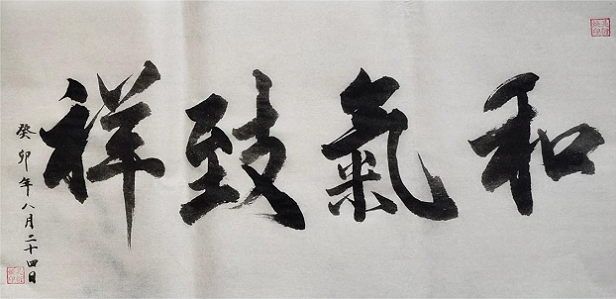 和氣致祥
癸卯年八月二十四日